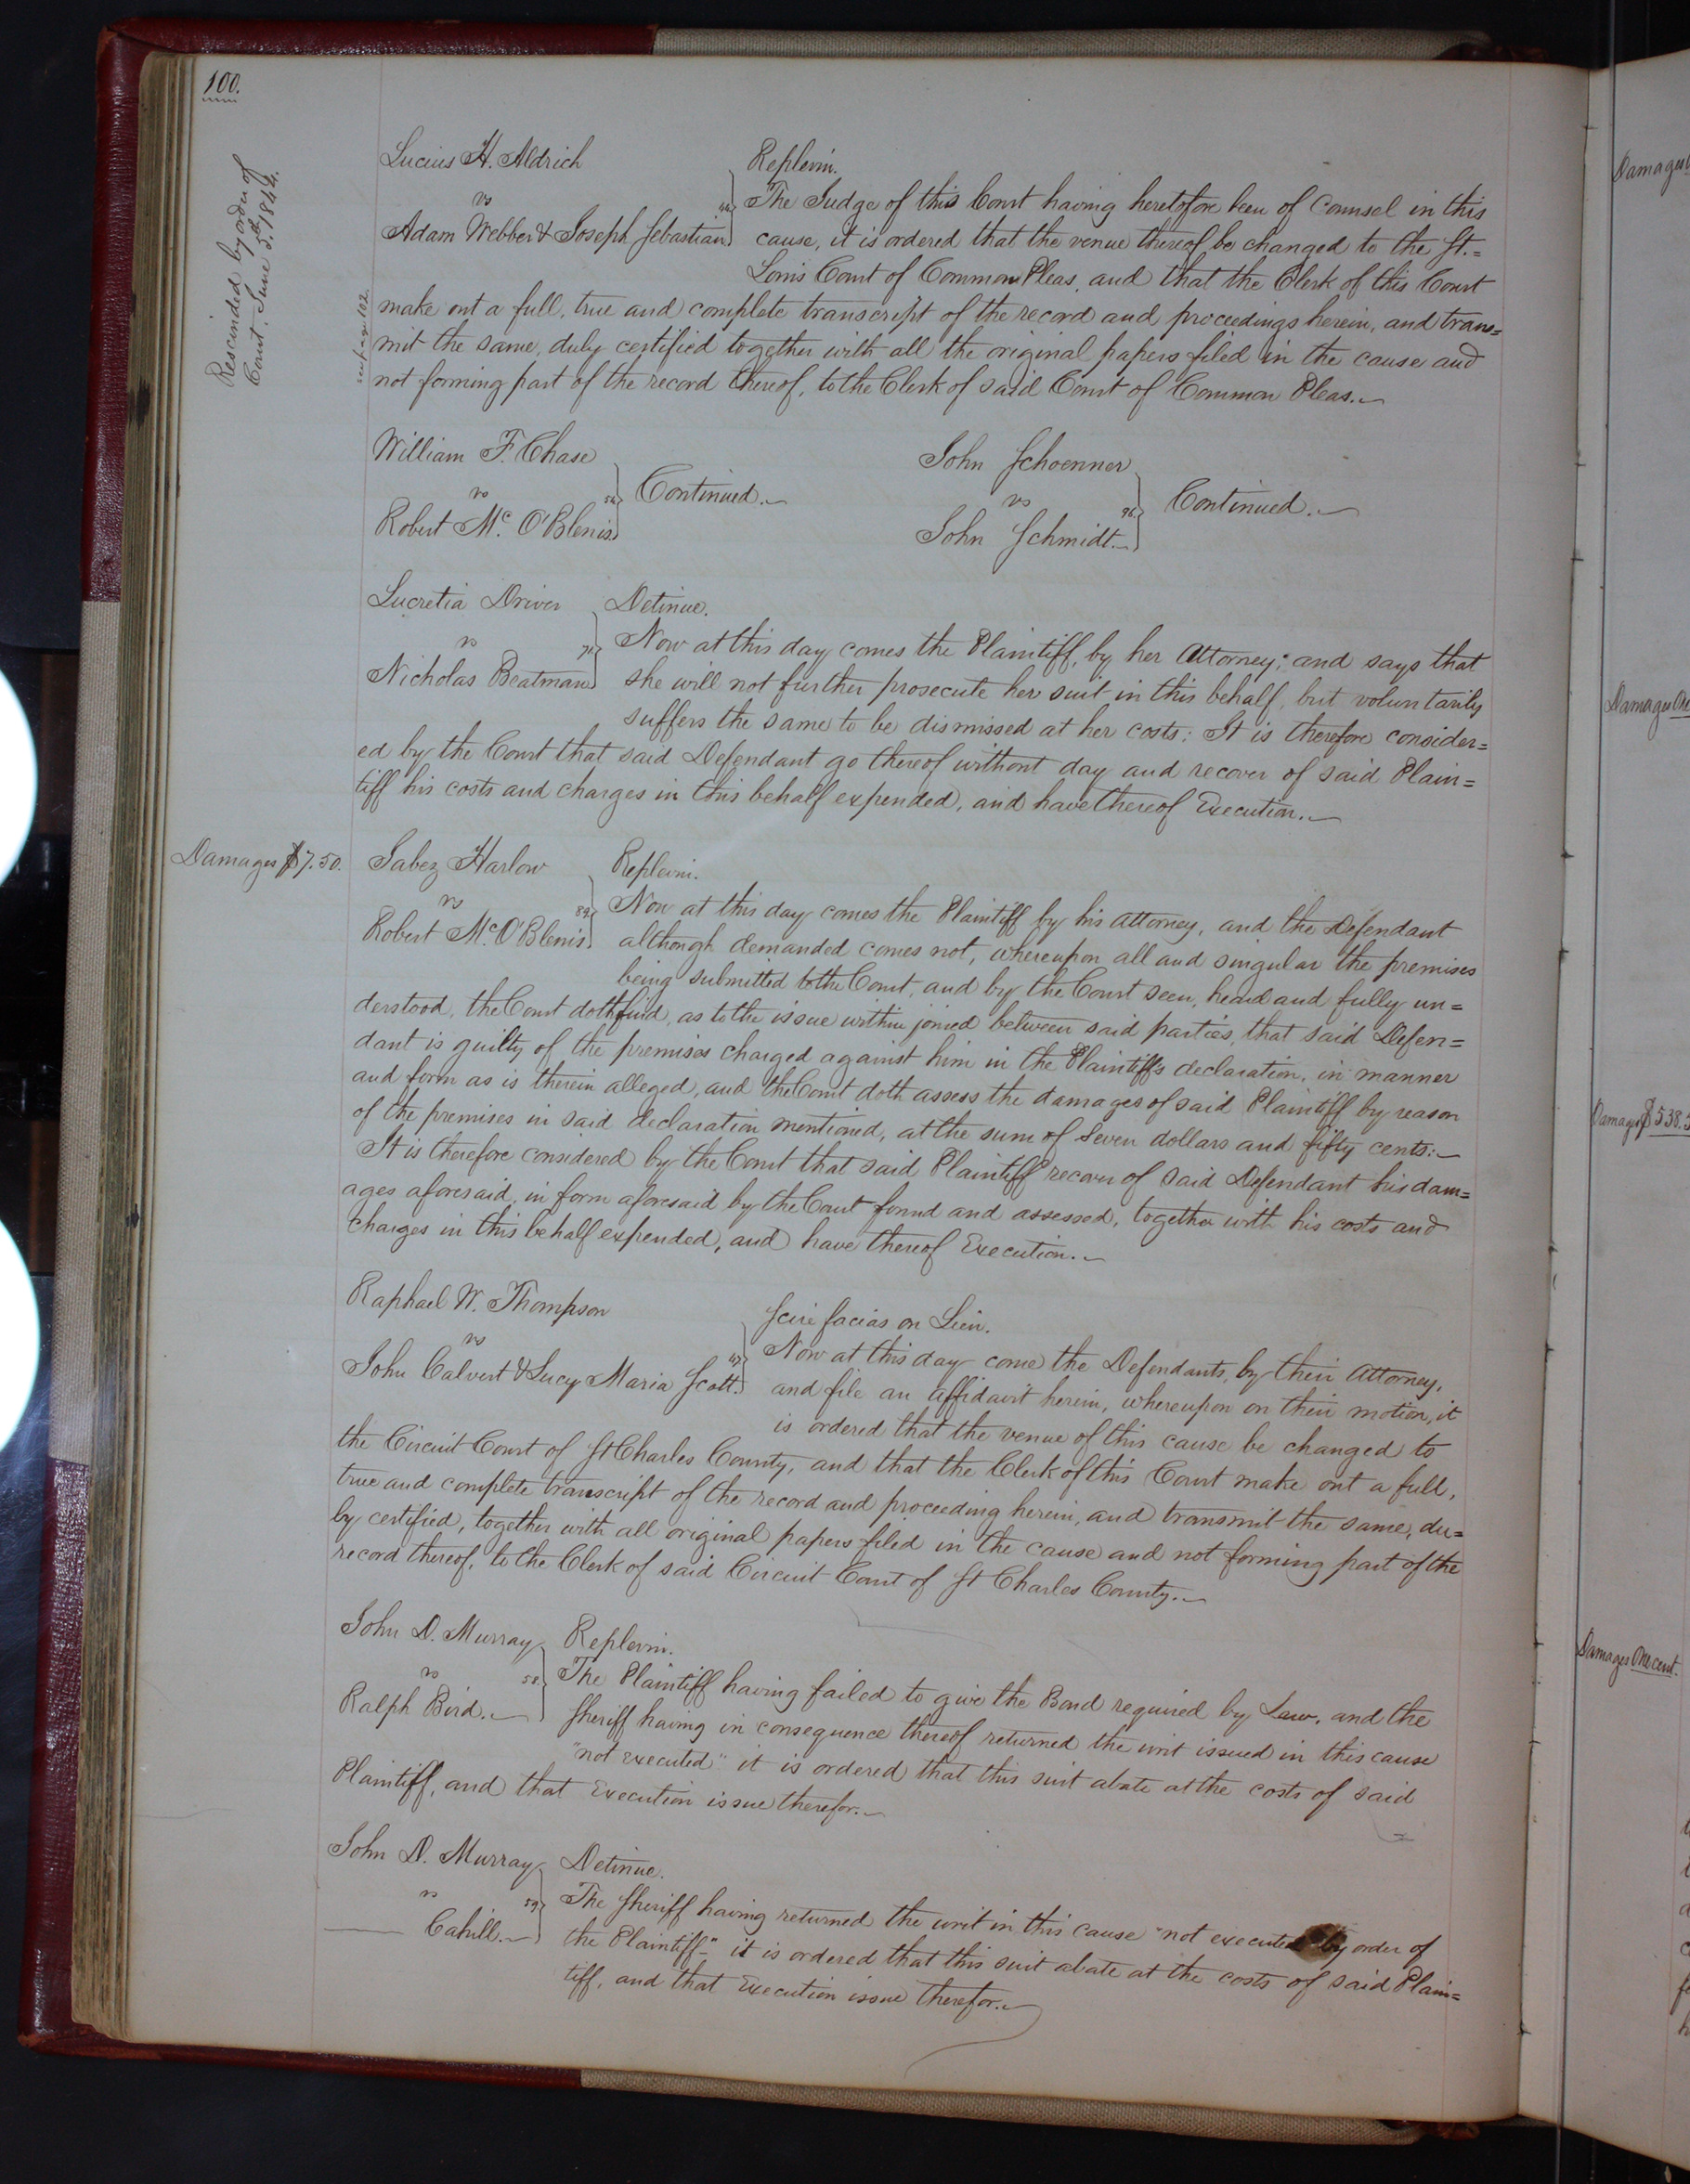 100.
Rescinded by order of
Court. June 5th 1844.
see page 102.
Lucius H. Aldrich
vs
Adam Webber & Joseph Sebastian
Replevin.
The Judge of this Court having heretofore been of Counsel in this
cause, it is ordered that the venue thereof be changed to the St.=
Louis Court of Common Pleas, and that the Clerk of this Court
make out a full, true and complete transcript of the record and proceedings herein, and trans=
mit the same, duly certified together with all the original papers filed in the cause and
not forming part of the record thereof, to the Clerk of said Court of Common Pleas.
William F. Chase
vs
Robert Mc. O'Blenis
Continued.
John Schoenner
vs
John Schmidt.
Continued.
Lucretia Driver
vs
Nicholas Beatman
Detinue.
Now at this day comes the Plaintiff, by her Attorney, and says that
she will not further prosecute her suit in this behalf, but voluntarily
suffers the same to be dismissed at her costs: It is therefore consider=
ed by the Court that said Defendant go thereof without day and recover of said Plain=
tiff his costs and charges in this behalf expended, and have thereof Execution.
Damages $7.50.
Jabez Harlow
vs
89
Robert Mc. O'Blenis
Replevin.
Now at this day comes the Plaintiff by his Attorney, and the Defendant
although demanded comes not, whereupon all and singular the premises
being submitted to the Court, and by the Court seen, heard and fully un=
derstood, the Court doth find, as to the issue within joined between said parties, that said Defen=
dant is guilty of the premises charged against him in the Plaintiff's declaration, in manner
and form as is therein alleged, and the Court doth assess the damages of said Plaintiff by reason
of the premises in said declaration mentioned, at the sum of Seven dollars and fifty cents:
It is therefore considered by the Court that said Plaintiff recover of said Defendant his dam=
ages aforesaid, in form aforesaid by the Court found and assessed, together with his costs and
charges in this behalf expended, and have thereof Execution.
Raphael W. Thompson
vs
47
John Calvert & Lucy Maria Scott.
Scire facias on Lien.
Now at this day come the Defendants, by their Attorney,
and file an affidavit herein, whereupon on their motion, it
is ordered that the venue of this cause be changed to
the Circuit Court of St Charles County, and that the Clerk of this Court make out a full,
true and complete transcript of the record and proceeding herein, and transmit the same, du=
ly certified, together with all original papers filed in the cause and not forming part of the
record thereof, to the Clerk of said Circuit Court of St Charles County.
John D. Murray
vs
58
Ralph Bird.
Replevin.
The Plaintiff having failed to give the Bond required by Law, and the
Sheriff having in consequence thereof returned the writ issued in this cause
"not executed" it is ordered that this suit abate at the costs of said
Plaintiff, and that Execution issue therefor.
John D. Murray
vs
59
Cahill.
Detinue.
The Sheriff having returned the writ in this cause "not executed by order of
the Plaintiff" it is ordered that this suit abate at the costs of said Plain=
tiff, and that Execution issue therefor.
Damages
Damages One
Damages $538.
Damages One cent.